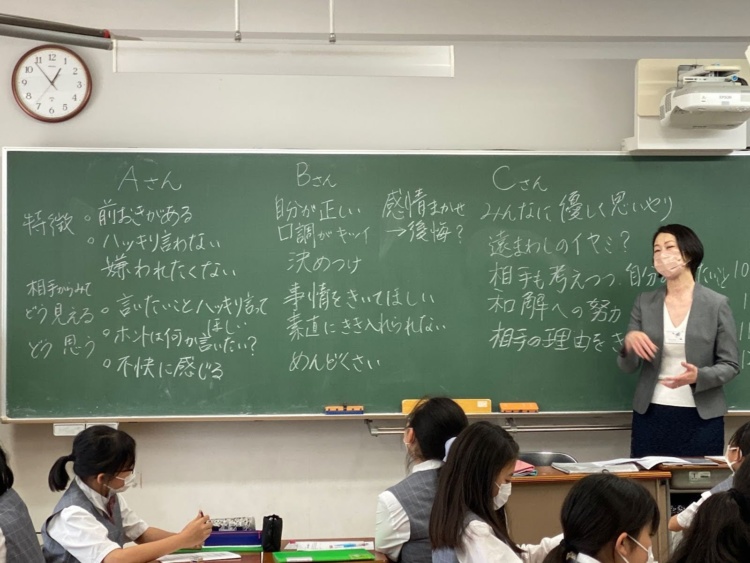 Aさん
特徴 ○ 前おきがある
○ ハッキリ言わない
嫌われたくない
相手からみて
どう見える ○ 言いたいことハッキリ言って
ほしい
どう思う ○ ホントは何が言いたい?
○ 不快に感じる
Bさん
自分が正しい
口調がキツイ
決めつけ
事情をきいてほしい
素直にきき入れられない
めんどくさい
感情まかせ
→後悔?
Cさん
みんなに優しく思いやり
遠まわしのイヤミ?
相手も考えつつ、自分
たいこと
和解への努力
相手の理由をき